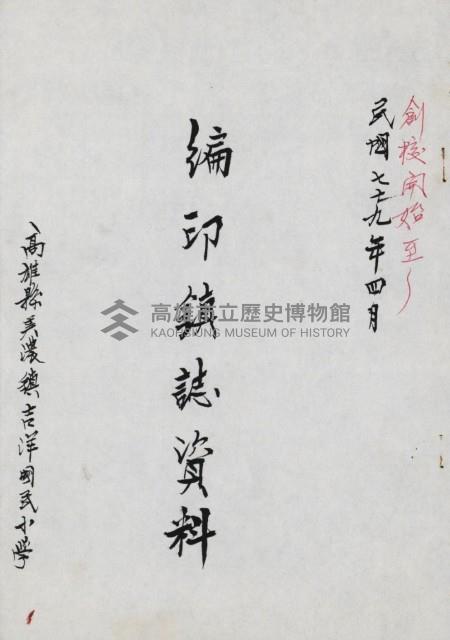 創校開始至～
民國七十九年四月
編印鎮誌資料
高雄市立歷史博物館
KAOHSIUNG MUSEUM OF HISTORY
、高雄縣美濃鎮吉洋國民小學